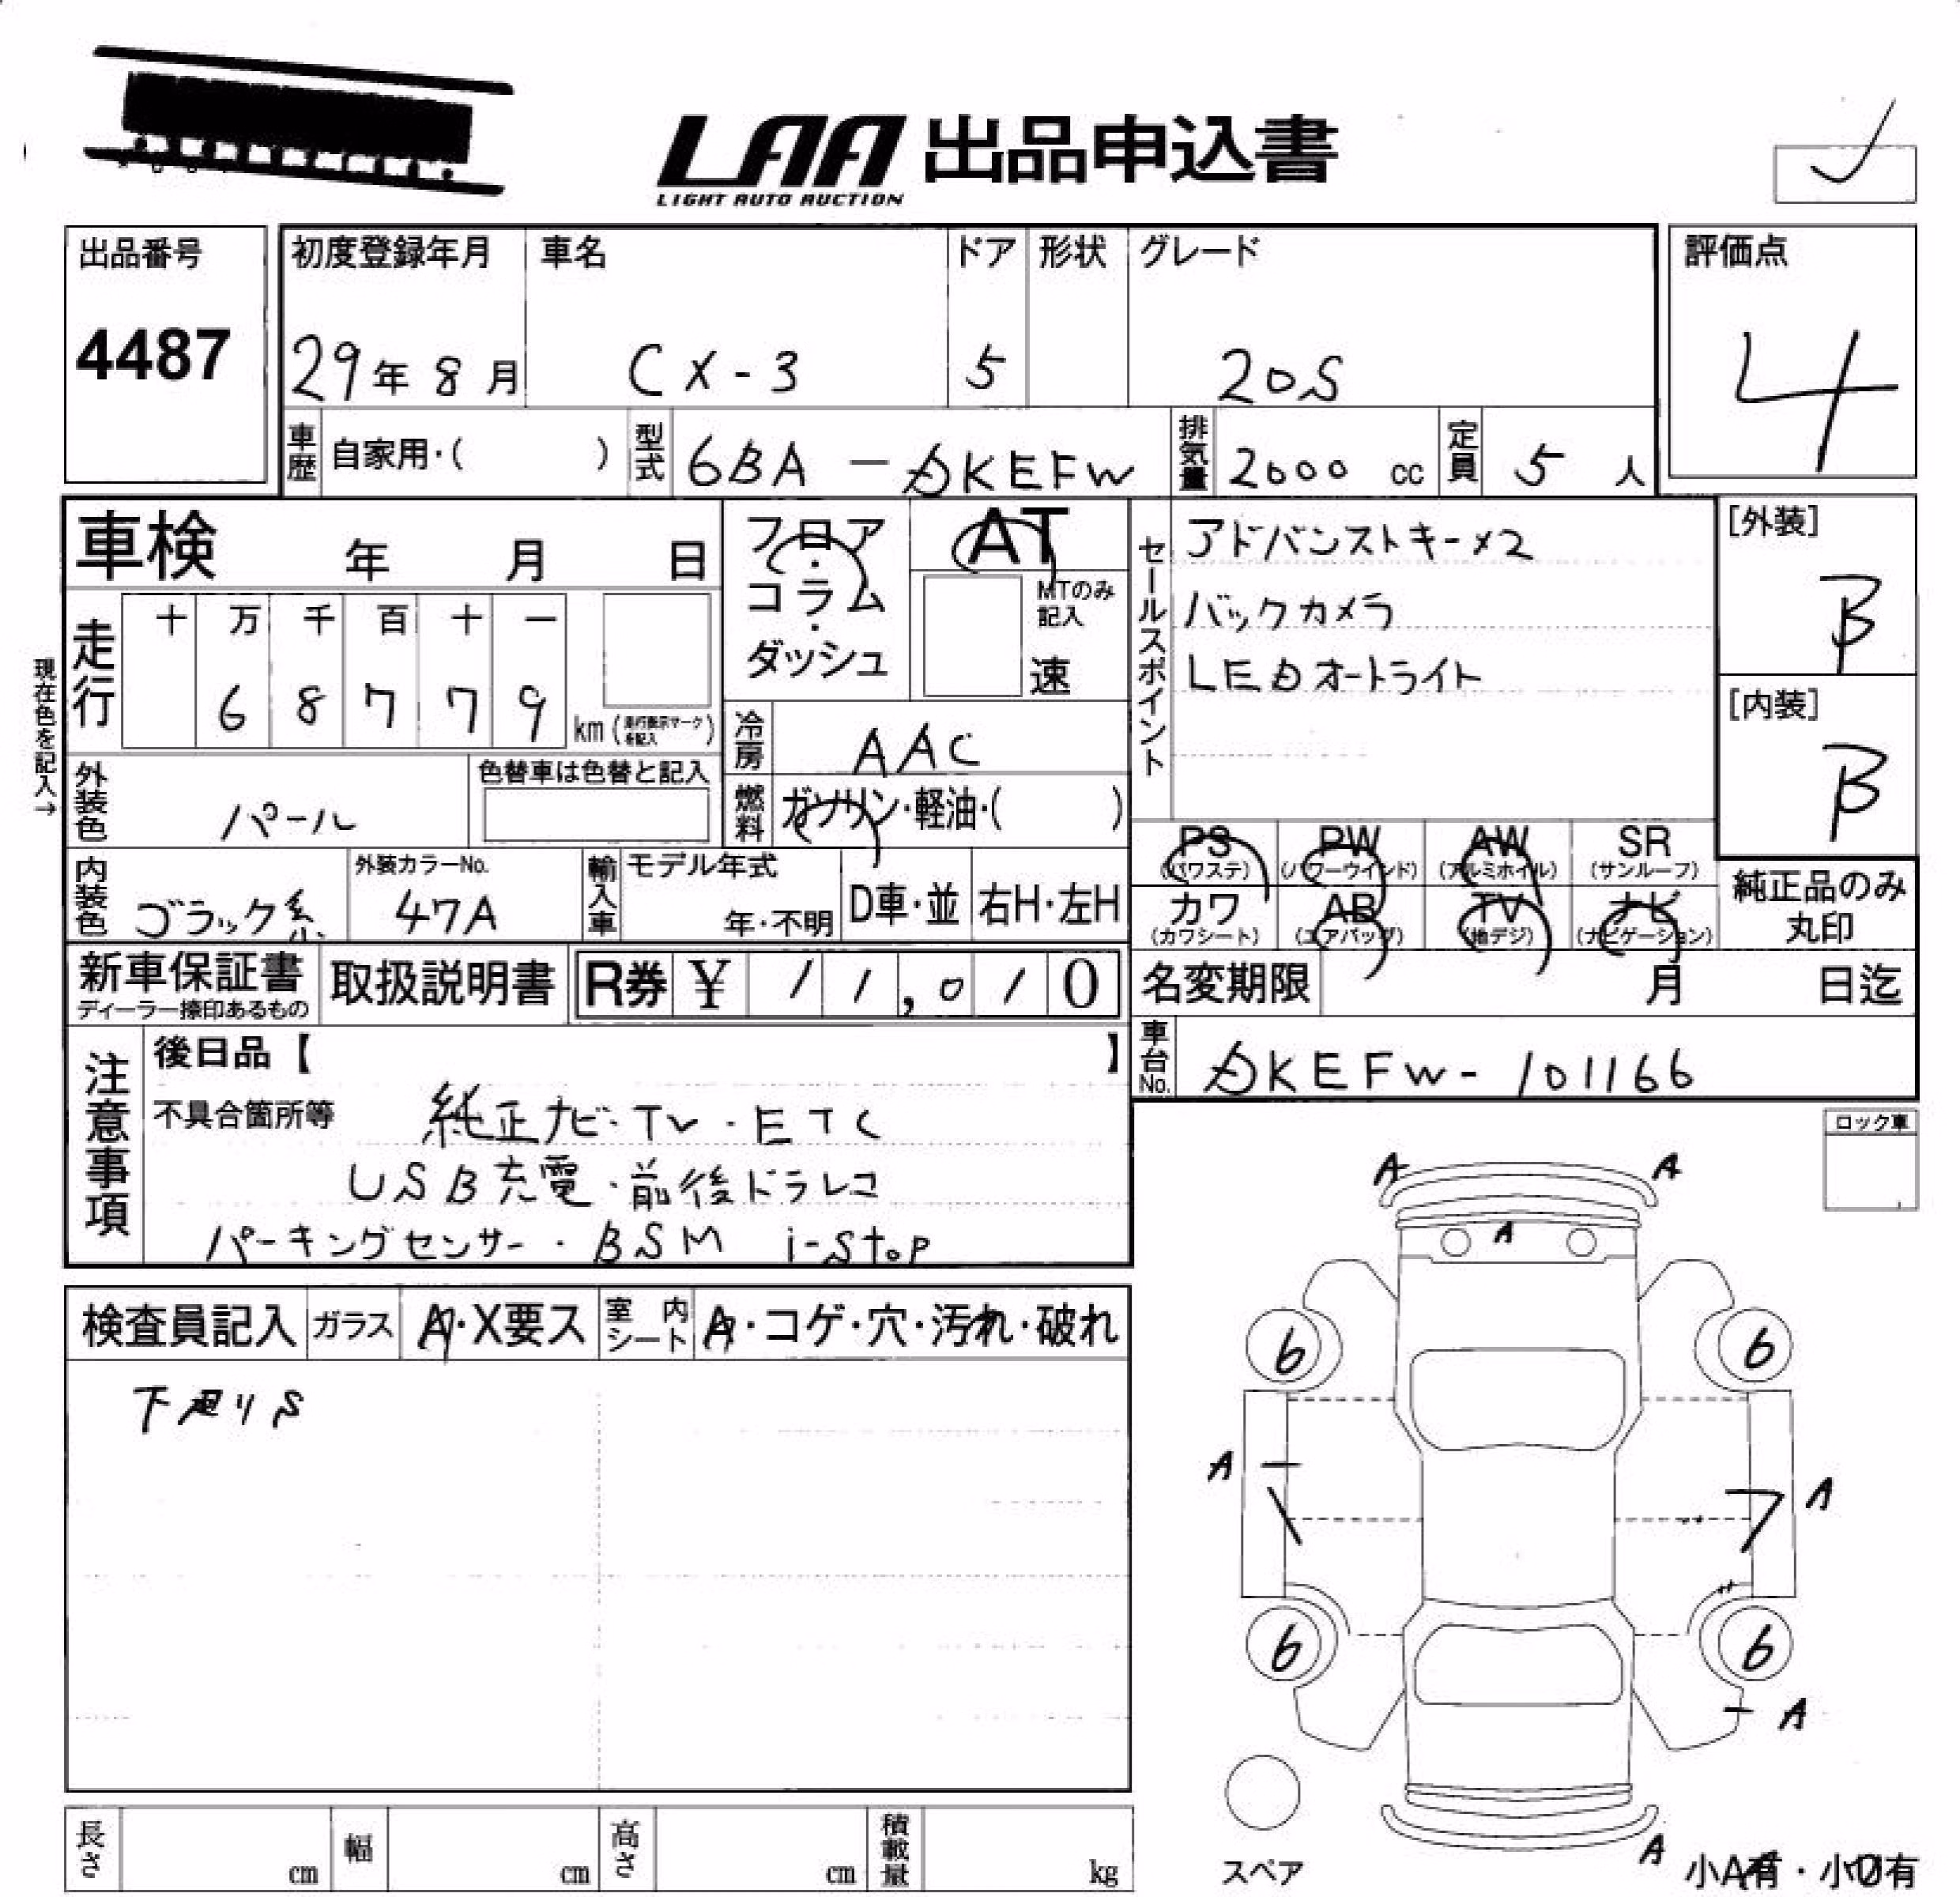 LAA 出品申込書
LIGHT AUTO AUCTION
出品番号
4487
初度登録年月
29年 8月
車名
CX-3
ドア
5
形状
グレード
20S
評価点
4
車歴 自家用・( )
型式 6BA-DKEFW
排気量 2000 cc
定員 5 人
車検 年 月 日
フロア・コラム・ダッシュ
AT
MTのみ記入
速
セールスポイント
アドバンストキー×2
バックカメラ
LEDオートライト
[外装]
B
[内装]
B
現在色を記入→
走行
十 万 千 百 十 一
6 8 7 7 9
km (走行表示マークを記入)
冷房 AAC
外装色 パール
色替車は色替と記入
燃料 ガソリン・軽油・( )
PS (パワステ)
PW (パワーウインド)
AW (アルミホイル)
SR (サンルーフ)
カワ (カワシート)
AB (エアバッグ)
TV (地デジ)
ナビ (ナビゲーション)
純正品のみ丸印
内装色 ブラック系
外装カラーNo. 47A
輸入車
モデル年式
年・不明
D車・並
右H・左H
新車保証書
ディーラー捺印あるもの
取扱説明書
R券 ¥ 11,010
名変期限 月 日迄
車台No. DKEFW-101166
注意事項
後日品【 】
不具合箇所等 純正ナビ・TV・ETC
USB充電・前後ドラレコ
パーキングセンサー・BSM i-stop
ロック車
検査員記入
ガラス A・X要ス
室内シート A・コゲ・穴・汚れ・破れ
下廻りS
A A
A
6 6
A A
6 6
A
A
スペア
小A有・小U有
長さ cm
幅 cm
高さ cm
積載量 kg